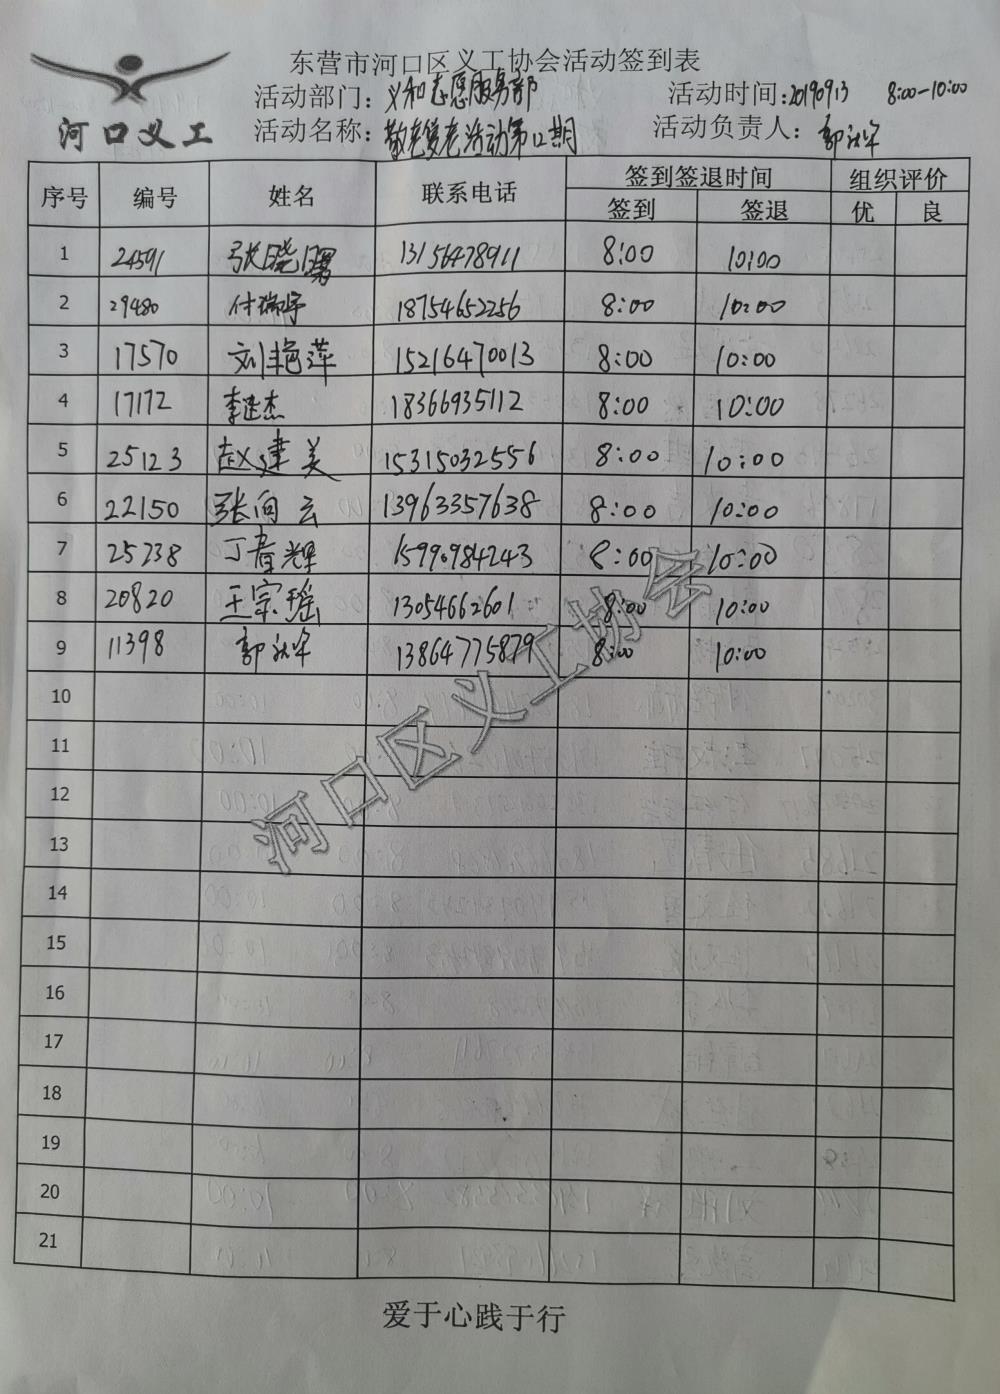 东营市河口区义工协会活动签到表
河口义工
活动部门：义和志愿服务部 活动时间:20190913 8:00-10:00
活动名称：敬老爱老活动第12期 活动负责人：郭
序号 编号 姓名 联系电话 签到签退时间 组织评价
签到 签退 优 良
1 24591 张晓曙 13156478911 8:00 10:00
2 29480 付瑞宇 18754652256 8:00 10:00
3 17570 刘艳萍 15216470013 8:00 10:00
4 17172 李建杰 18366935112 8:00 10:00
5 25123 赵建美 15315032556 8:00 10:00
6 22150 张向云 13963357638 8:00 10:00
7 25238 丁春辉 15990984243 8:00 10:00
8 20820 王宗瑶 13054662601 8:00 10:00
9 11398 郭 13864775879 8:00 10:00
10
11
12
13
14
15
16
17
18
19
20
21
河口区义工协会
爱于心践于行